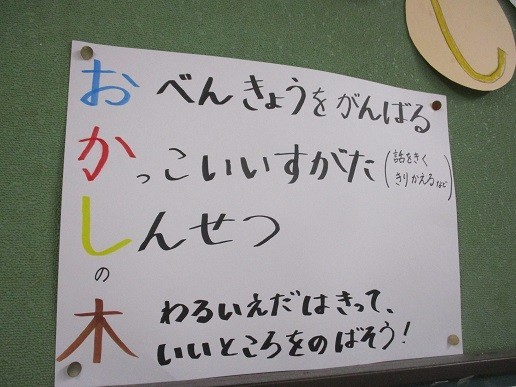 お べんきょうをがんばる
かっこいいすがた(話をきく きりかえるなど)
しんせつ
の
木 わるいえだはきって、
いいところをのばそう！
し